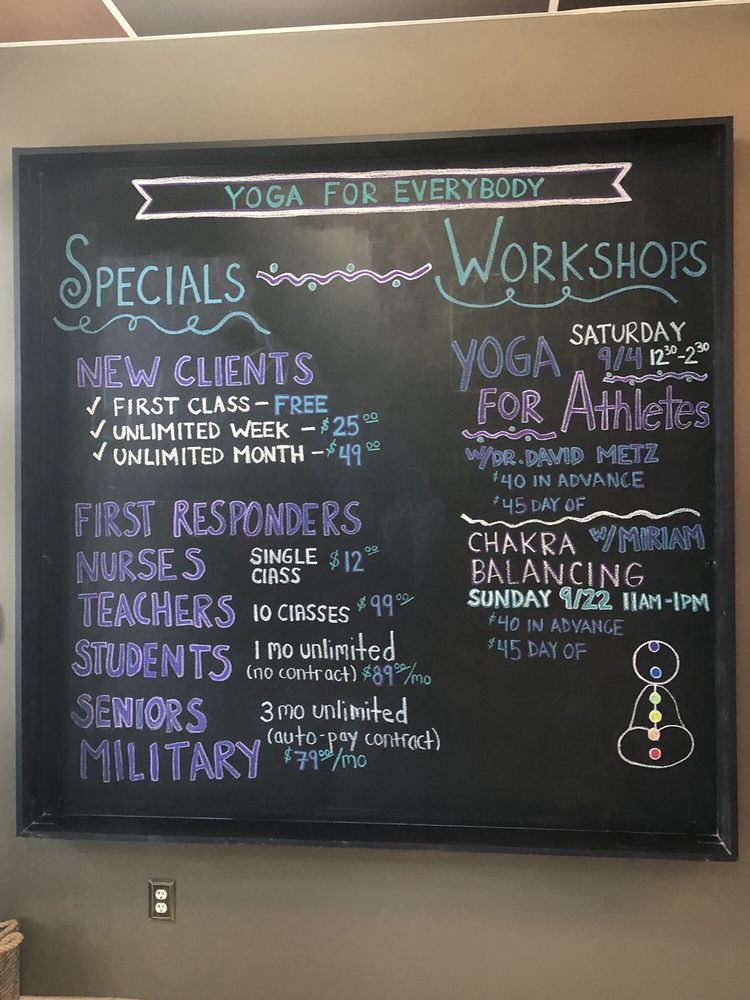 YOGA FOR EVERYBODY
SPECIALS
NEW CLIENTS
✓ FIRST CLASS - FREE
✓ UNLIMITED WEEK - $25.00
✓ UNLIMITED MONTH - $49.00
FIRST RESPONDERS
NURSES
TEACHERS
STUDENTS
SENIORS
MILITARY
SINGLE CLASS $12.00
10 CLASSES $99.00
1 mo unlimited
(no contract) $89.00/mo
3 mo unlimited
(auto-pay contract)
$79.00/mo
WORKSHOPS
YOGA
FOR Athletes
SATURDAY
9/4 12:30-2:30
W/DR. DAVID METZ
$40 IN ADVANCE
$45 DAY OF
CHAKRA W/MIRIAM
BALANCING
SUNDAY 9/22 11AM-1PM
$40 IN ADVANCE
$45 DAY OF